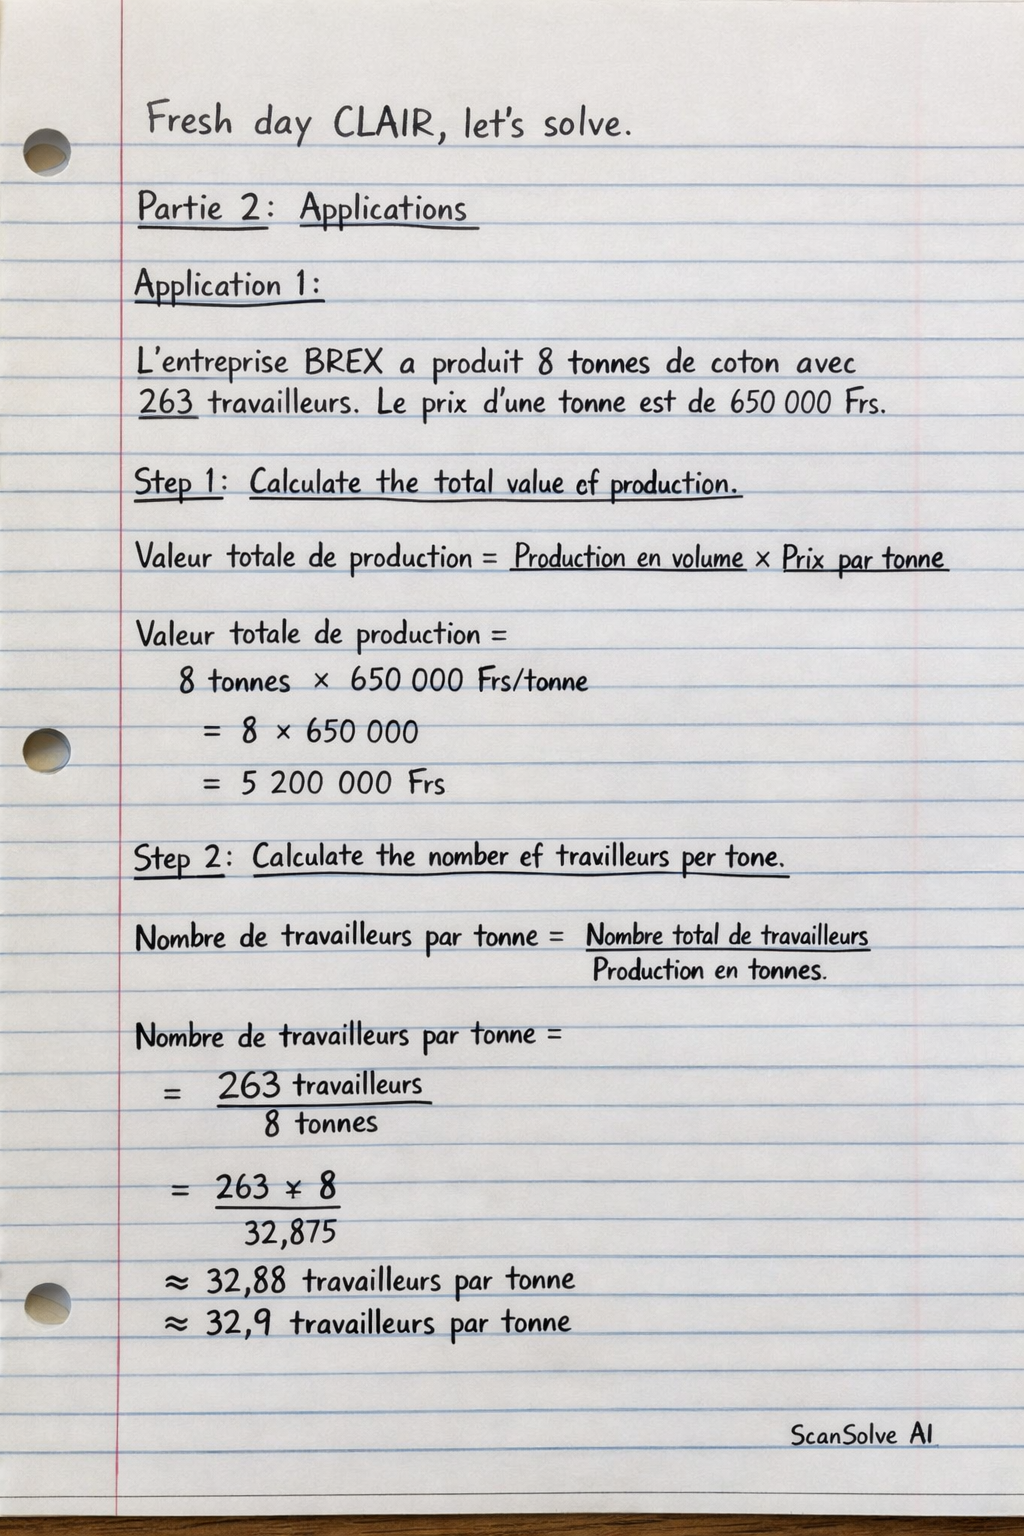 Fresh day CLAIR, let's solve.
Partie 2: Applications
Application 1:
L'entreprise BREX a produit 8 tonnes de coton avec
263 travailleurs. Le prix d'une tonne est de 650 000 Frs.
Step 1: Calculate the total value ef production.
Valeur totale de production = Production en volume × Prix par tonne
Valeur totale de production =
8 tonnes × 650 000 Frs/tonne
= 8 × 650 000
= 5 200 000 Frs
Step 2: Calculate the nomber ef travilleurs per tone.
Nombre de travailleurs par tonne = Nombre total de travailleurs
Production en tonnes.
Nombre de travailleurs par tonne =
= 263 travailleurs
8 tonnes
= 263 ¥ 8
32,875
≈ 32,88 travailleurs par tonne
≈ 32,9 travailleurs par tonne
ScanSolve AI